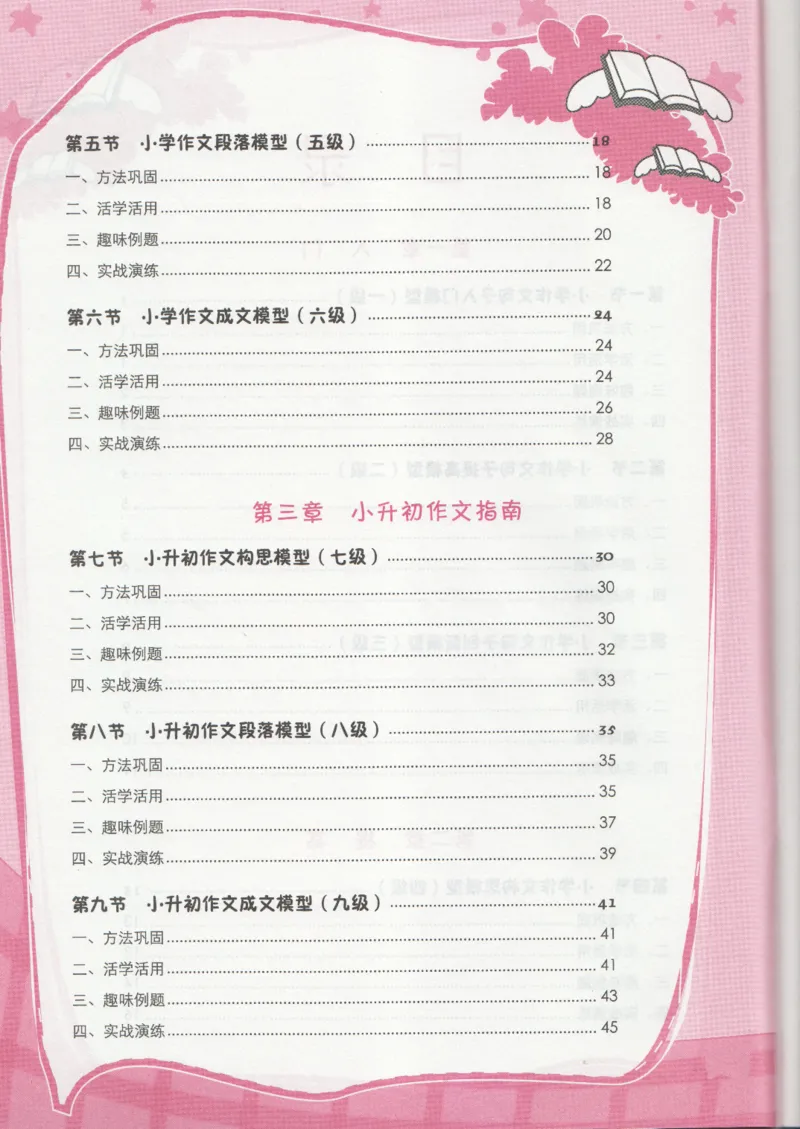 第五节 小学作文段落模型（五级）……18
一、方法巩固……18
二、活学活用……18
三、趣味例题……20
四、实战演练……22
第六节 小学作文成文模型（六级）……24
一、方法巩固……24
二、活学活用……24
三、趣味例题……26
四、实战演练……28
第三章 小升初作文指南
第七节 小升初作文构思模型（七级）……30
一、方法巩固……30
二、活学活用……30
三、趣味例题……32
四、实战演练……33
第八节 小升初作文段落模型（八级）……35
一、方法巩固……35
二、活学活用……35
三、趣味例题……37
四、实战演练……39
第九节 小升初作文成文模型（九级）……41
一、方法巩固……41
二、活学活用……41
三、趣味例题……43
四、实战演练……45